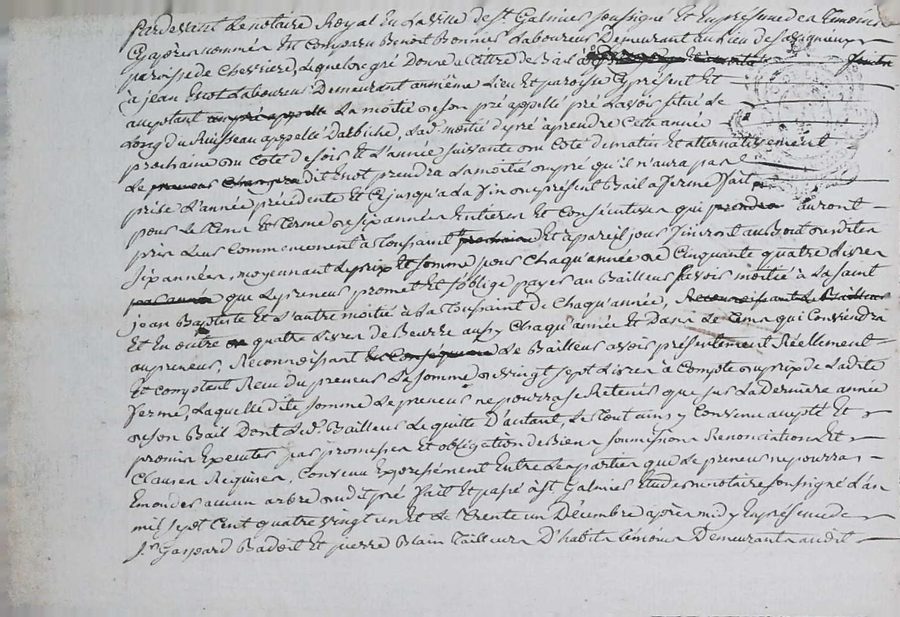 Pardevant Le notaire Royal En La ville de st Galmier soussigné Et En présence des témoins
Cy après nommés Est Comparu Benoit Bonnier Laboureur Demeurant au Lieu de
paroisse de Chevriere, Lequel de gré Donne a titre de Bail a
à jean Laboureur Demeurant au même Lieu Et paroisse Cy présent Et
acceptant La moitié de son pré appellé pré Lavoir situé Le
Long du Ruisseau appellé Lad. moitié de pré a prendre Cette année
prochaine du Coté de soir Et L'année suivante du Coté de matin Et alternativement
Le dit prendra La moitié du pré qu'il n'aura pas
prise L'année précédente Et Ce jusqu'a La fin du présent Bail a ferme fait
pour Le tems Et terme de six années Entieres Et Consécutives qui auront
pris Leur Commencement a toussaint Et a pareil jour finiront au Bout desdites
six années, moyennant Le prix Et somme pour Chaqu'année de Cinquante quatre Livres
que Le preneur promet Et s'oblige payer au Bailleur sçavoir moitié à La saint
jean Baptiste Et L'autre moitié à La toussaint de Chaqu'année,
Et En outre quatre Livres de Beurre aussy Chaqu'année Et dans Le tems qui Conviendra
au preneur, Reconnoissant Le Bailleur avoir présentement Réellement
Et Comptant Reçu du preneur La somme de vingt sept Livres à Compte du prix de Ladite
ferme, Laquelle dite somme Le preneur ne pourra se Retenir que sur La derniere année
de son Bail Dont Led. Bailleur Le quitte D'autant, Le tout ainsy Convenu accepté Et
promis Executer par promesses Et obligation de Biens soumissions Renonciations Et
Clauses Requises, Convenu Expressément Entre Les parties que Le preneur ne pourra
Emonder aucun arbre dudit pré fait Et passé à st Galmier Etude du notaire soussigné L'an
mil sept Cent quatre vingt un Et Le trente un Décembre après midy En présence de
Gaspard Badoit Et pierre Blain tailleurs D'habits témoins Demeurants audit